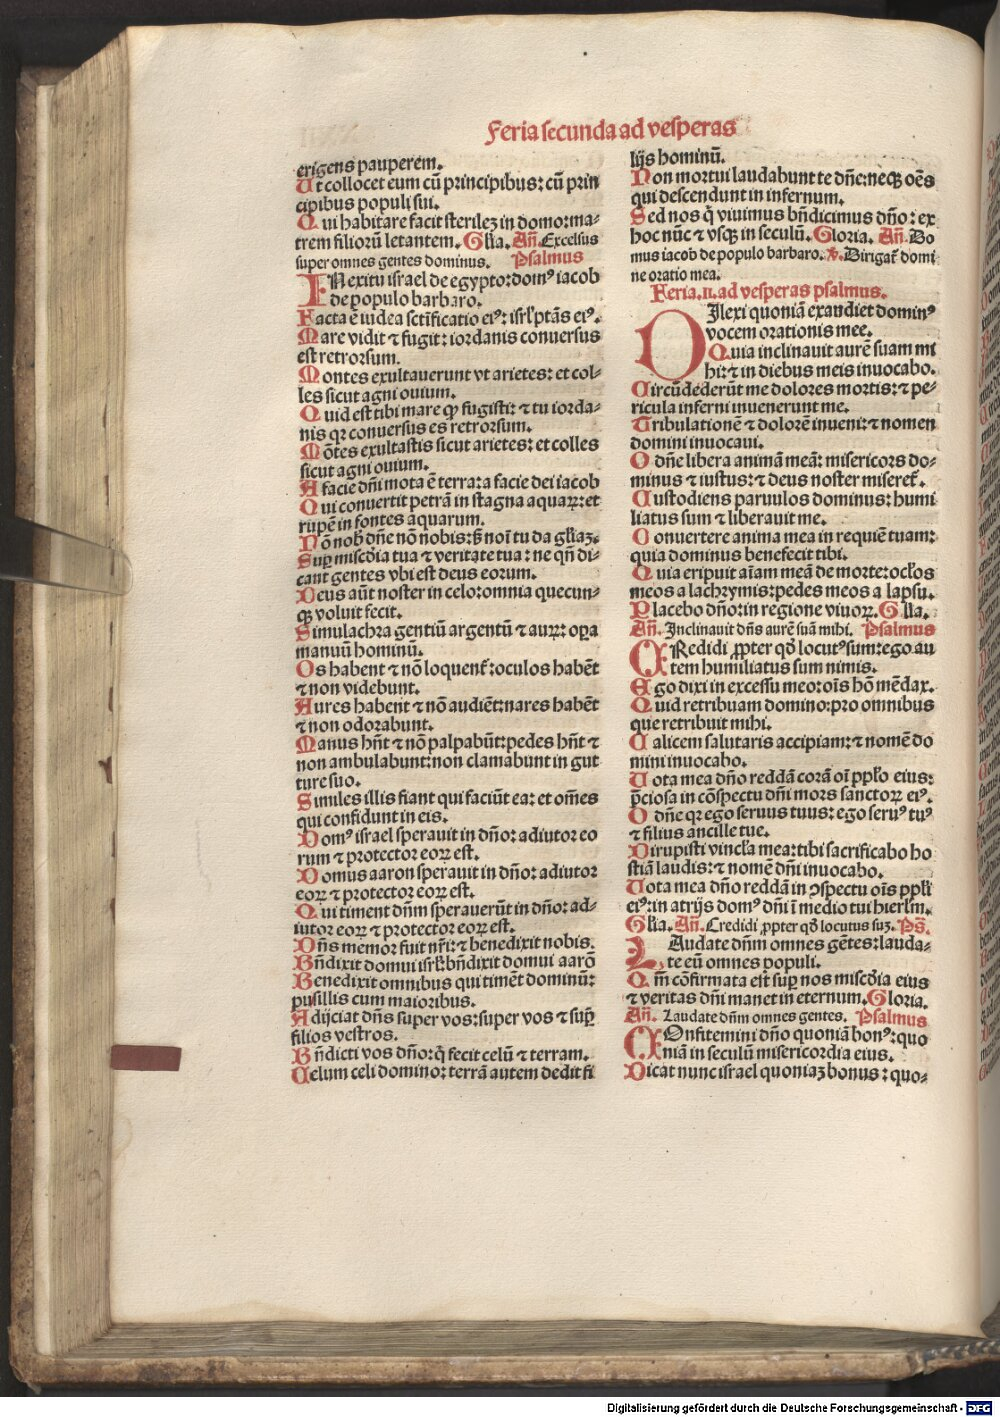 Feria secunda ad vesperas
erigens pauperem.
Ut collocet eum cū principibus: cū prin
cipibus populi sui.
Qui habitare facit sterilez in domo: ma-
trem filiorū letantem. Glia. Añ. Excelsus
super omnes gentes dominus. Psalmus
IN exitu israel de egypto: domꝰ iacob
de populo barbaro.
Facta ē iudea sctificatio eiꝰ: isrl ptās eiꝰ.
Mare vidit ⁊ fugit: iordanis conuersus
est retrorsum.
Montes exultauerunt vt arietes: et col-
les sicut agni ouium.
Quid est tibi mare qꝫ fugisti: ⁊ tu iorda-
nis qꝛ conuersus es retrorsum.
Mōtes exultastis sicut arietes: et colles
sicut agni ouium.
A facie dn̄i mota ē terra: a facie dei iacob
Qui conuertit petrā in stagna aquaꝝ: et
rupē in fontes aquarum.
Nō nob dn̄e nō nobis: ß noī tu da gliaꝫ.
Suꝑ miscdia tua ⁊ veritate tua: ne qn̄ di-
cant gentes vbi est deus eorum.
Deus aūt noster in celo: omnia quecun-
qꝫ voluit fecit.
Simulachra gentiū argentū ⁊ auꝝ: oꝑa
manuū hominū.
Os habent ⁊ nō loquent: oculos habēt
⁊ non videbunt.
Aures habent ⁊ nō audiēt: nares habēt
⁊ non odorabunt.
Manus hn̄t ⁊ nō palpabūt: pedes hn̄t ⁊
non ambulabunt: non clamabunt in gut
ture suo.
Similes illis fiant qui faciūt ea: et om̄es
qui confidunt in eis.
Domꝰ israel sperauit in dn̄o: adiutor eo
rum ⁊ protector eoꝝ est.
Domus aaron sperauit in dn̄o: adiutor
eoꝝ ⁊ protector eoꝝ est.
Qui timent dn̄m sperauerūt in dn̄o: ad-
iutor eoꝝ ⁊ protector eoꝝ est.
Dn̄s memor fuit nr̄i: ⁊ benedixit nobis.
Bn̄dixit domui isrl: bn̄dixit domui aarō
Benedixit omnibus qui timēt dominū:
pusillis cum maioribus.
Adijciat dn̄s super vos: super vos ⁊ suꝑ
filios vestros.
Bn̄dicti vos dn̄o: q̄ fecit celū ⁊ terram.
Celum celi domino: terrā autem dedit fi
lijs hominū.
Non mortui laudabunt te dn̄e: neqꝫ oēs
qui descendunt in infernum.
Sed nos q̄ viuimus bn̄dicimus dn̄o: ex
hoc nūc ⁊ vsqꝫ in seculū. Gloria. Añ. Do
mus iacob de populo barbaro. ℣. Dirigat domi
ne oratio mea.
Feria .ii. ad vesperas psalmus.
DIlexi quoniā exaudiet dominꝰ
vocem orationis mee.
Quia inclinauit aurē suam mi
hi: ⁊ in diebus meis inuocabo.
Circūdederūt me dolores mortis: ⁊ pe-
ricula inferni inuenerunt me.
Tribulationē ⁊ dolorē inueni: ⁊ nomen
domini inuocaui.
O dn̄e libera animā meā: misericors do-
minus ⁊ iustus: ⁊ deus noster miseret.
Custodiens paruulos dominus: humi
liatus sum ⁊ liberauit me.
Conuertere anima mea in requiē tuam:
quia dominus benefecit tibi.
Quia eripuit aīam meā de morte: oclos
meos a lachrymis: pedes meos a lapsu.
Placebo dn̄o: in regione viuoꝝ. Glia.
Añ. Inclinauit dn̄s aurē suā mihi. Psalmus
CRedidi ꝓpter qd locutꝰ sum: ego au
tem humiliatus sum nimis.
Ego dixi in excessu meo: oīs hō mēdax.
Quid retribuam domino: pro omnibus
que retribuit mihi.
Calicem salutaris accipiam: ⁊ nomē do
mini inuocabo.
Vota mea dn̄o reddā corā oī pplo eius:
p̄ciosa in cōspectu dn̄i mors sanctoꝝ eiꝰ.
O dn̄e qꝛ ego seruus tuus: ego seruꝰ tuꝰ
⁊ filius ancille tue.
Dirupisti vincla mea: tibi sacrificabo ho
stiā laudis: ⁊ nomē dn̄i inuocabo.
Vota mea dn̄o reddā in ↄspectu oīs ppli
eiꝰ: in atrijs domꝰ dn̄i ī medio tui hierlm.
Glia. Añ. Credidi ꝓpter qd locutus suꝫ. Ps.
LAudate dn̄m omnes gētes: lauda-
te eū omnes populi.
Qm̄ cōfirmata est suꝑ nos miscdia eius
⁊ veritas dn̄i manet in eternum. Gloria.
Añ. Laudate dn̄m omnes gentes. Psalmus
COnfitemini dn̄o quoniā bonꝰ: quo
niā in seculū misericordia eius.
Dicat nunc israel quoniaꝫ bonus: quo-
Digitalisierung gefördert durch die Deutsche Forschungsgemeinschaft - DFG